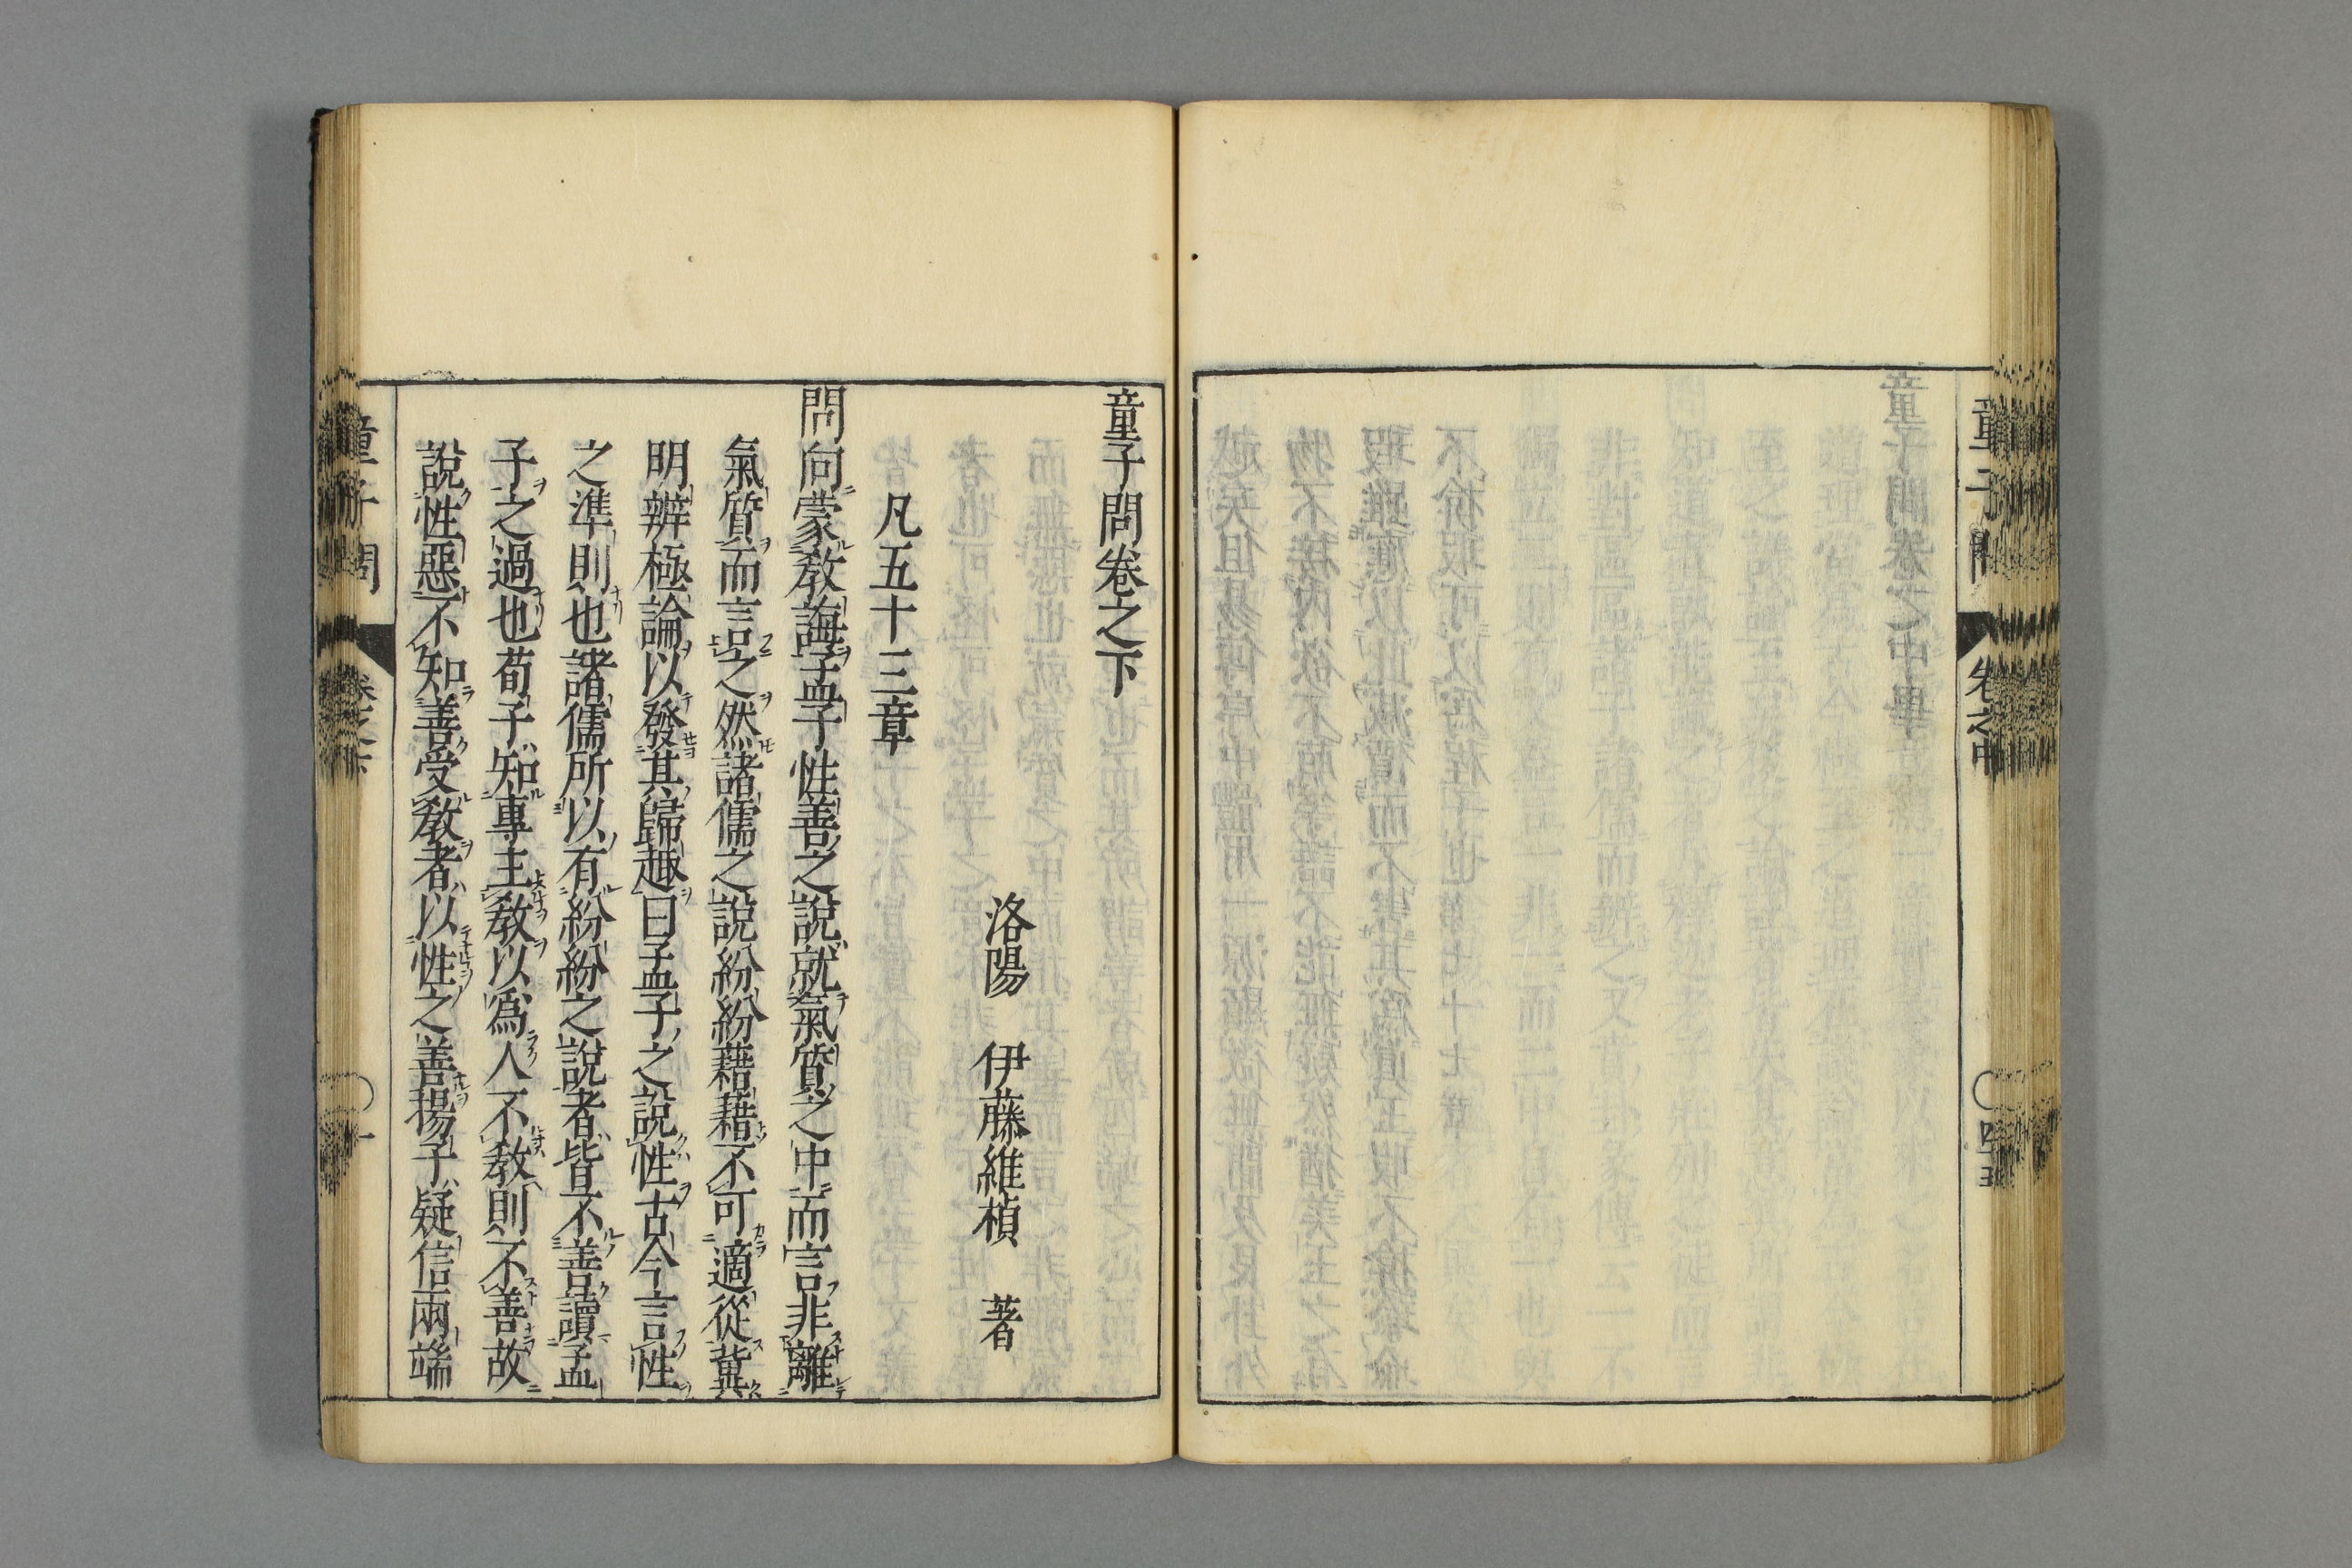 童子問
卷之中
四十五
童子問卷之下
洛陽 伊藤維楨 著
凡五十三章
問向蒙教誨孟子性善之說就氣質之中而言非離
氣質而言之然諸儒之說紛紛藉藉不可適從冀
明辨極論以發其歸趣曰孟子之說性古今言性
之準則也諸儒所以有紛紛之說者皆不善讀孟
子之過也荀子知專主教以爲人不教則不善故
說性惡不知善受教者以性之善揚子疑信兩端
童子問
卷之下
一